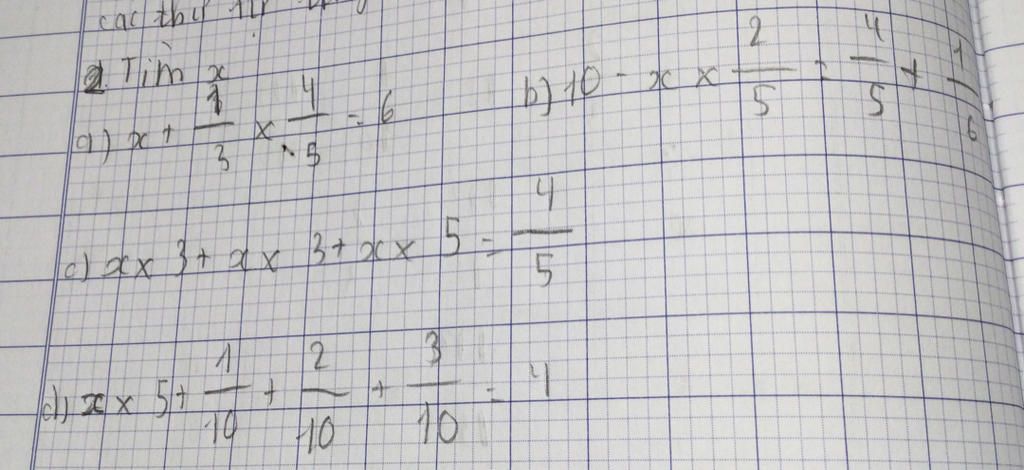 2. Tìm x
a) x + 1/3 × 4/5 = 6 b) 10 - x × 2/5 = 4/5 + 1/6
c) x × 3 + x × 3 + x × 5 = 4/5
d) x × 5 + 1/10 + 2/10 + 3/10 = 4